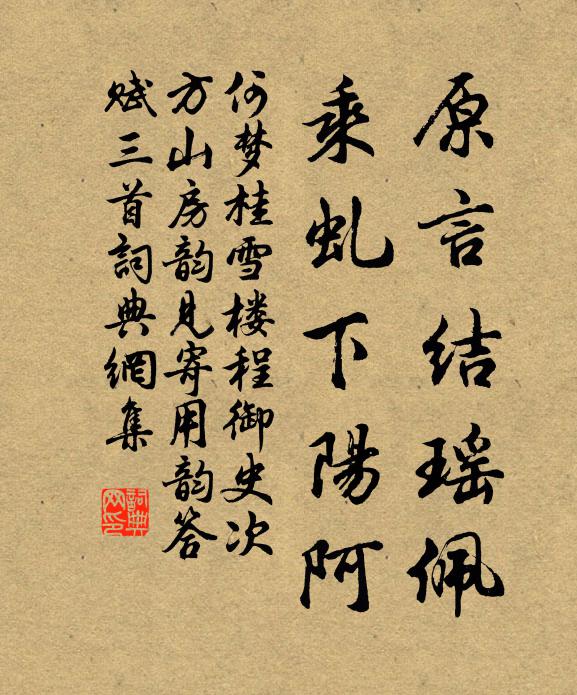 原言结瑶佩
乘虬下陽阿
何梦桂雪楼程御史次
方山房韵见寄用韵答
赋三首詞典網集
詞典
网印